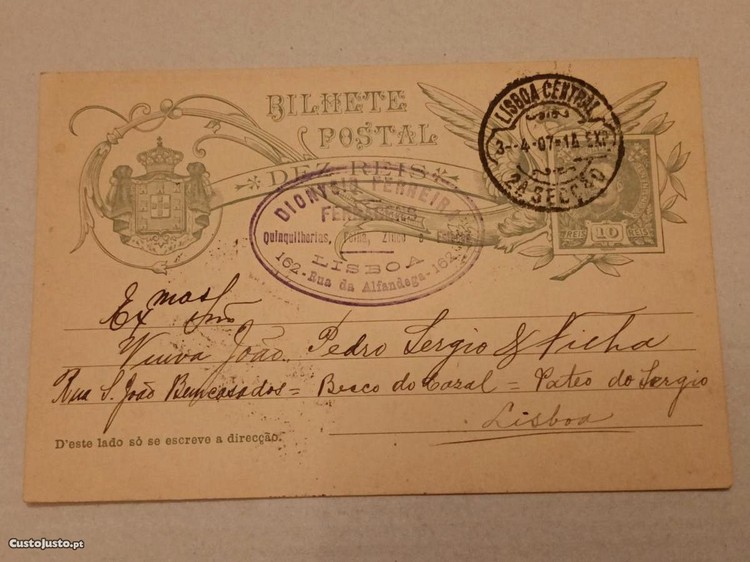 BILHETE
POSTAL
DEZ REIS
LISBOA CENTRAL
3-4-07-1A EXP
2A SECÇÃO
REIS 10 REIS
DIONYSIO FERREIRA
FERRAGENS
Quinquilherias, Folha, Zinco e
LISBOA
162-Rua da Alfandega-162
Exmas Snras
Viuva João Pedro Sergio & Filha
Rua S. João Bemcasados = Becco do Cazal = Pateo do Sergio
Lisboa
D'este lado só se escreve a direcção.
CustoJusto.pt